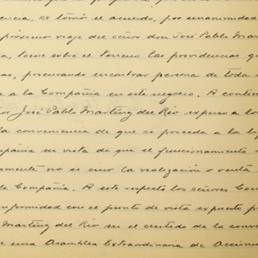 encia, se tomó el acuerdo, por unanimidad
próximo viaje del señor don José Pablo Mart
a, tome sobre el terreno las providencias q
as, procurando encontrar persona de toda
e a la Compañía en este negocio. A contin
or José Pablo Martínez del Río expuso a los
la conveniencia de que se proceda a la li
pañía en vista de que el funcionamiento
amente no es sino la realización o venta
la Compañía. A este respecto los señores Con
onformidad con el punto de vista expuesto p
Martínez del Río en el sentido de la conve
a una Asamblea Extraordinaria de Accioni